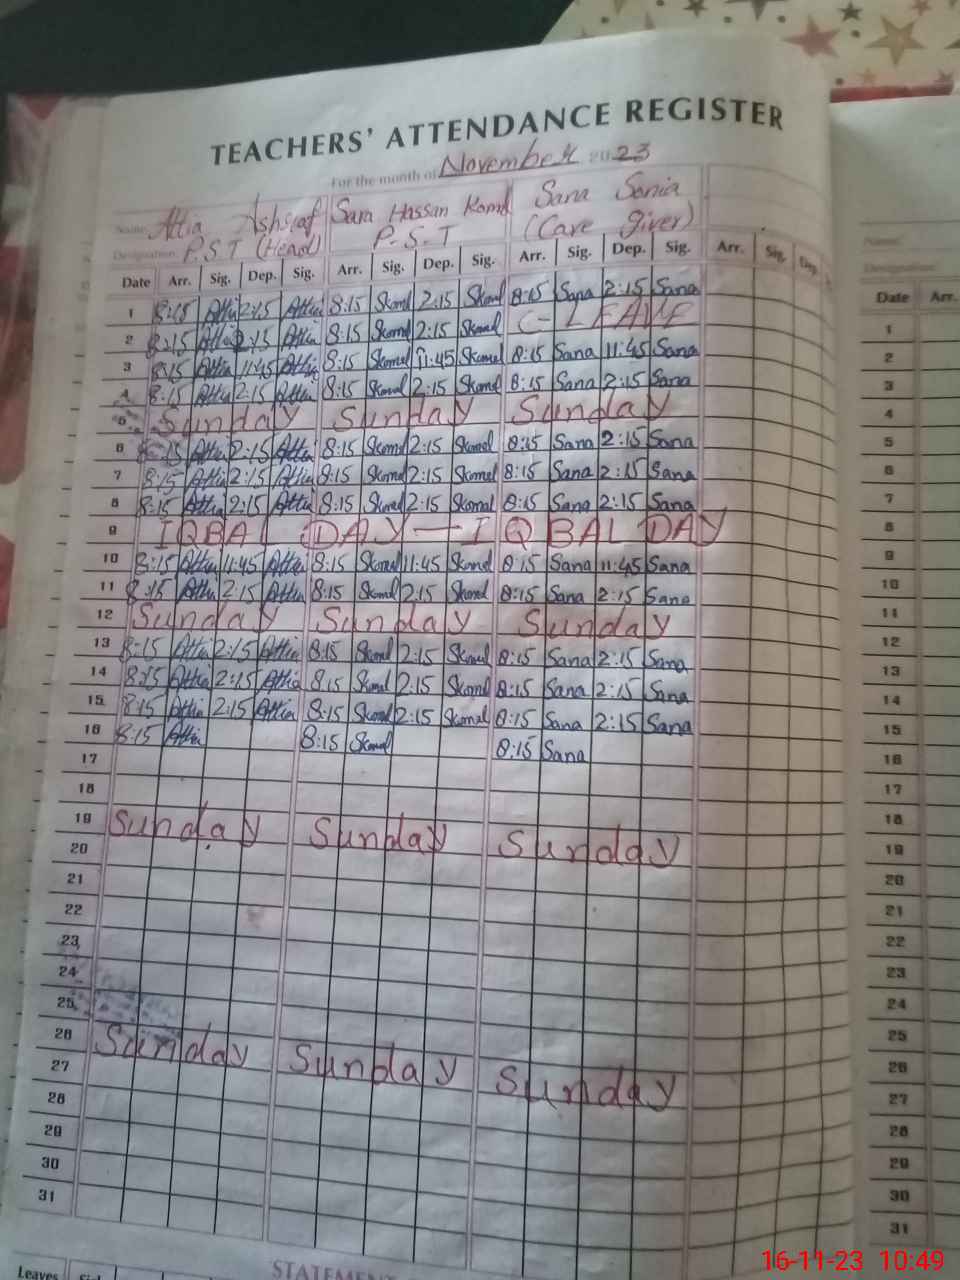 TEACHERS' ATTENDANCE REGISTER
For the month of November 2023
Name Attia Ashraf Sara Hassan Komal Sana Sonia
Designation P.S.T (Head) P.S.T (Care giver)
Date Arr. Sig. Dep. Sig. Arr. Sig. Dep. Sig. Arr. Sig. Dep. Sig. Arr. Sig. Dep.
1 8:15 Attia 2:15 Attia 8:15 Skomal 2:15 Skomal 8:15 Sana 2:15 Sana
2 8:15 Attia 2:15 Attia 8:15 Skomal 2:15 Skomal C-LEAVE
3 8:15 Attia 11:45 Attia 8:15 Skomal 11:45 Skomal 8:15 Sana 11:45 Sana
4 8:15 Attia 2:15 Attia 8:15 Skomal 2:15 Skomal 8:15 Sana 2:15 Sana
5 Sunday Sunday Sunday
6 8:15 Attia 2:15 Attia 8:15 Skomal 2:15 Skomal 8:15 Sana 2:15 Sana
7 8:15 Attia 2:15 Attia 8:15 Skomal 2:15 Skomal 8:15 Sana 2:15 Sana
8 8:15 Attia 2:15 Attia 8:15 Skomal 2:15 Skomal 8:15 Sana 2:15 Sana
9 IQBAL DAY — IQBAL DAY
10 8:15 Attia 11:45 Attia 8:15 Skomal 11:45 Skomal 8:15 Sana 11:45 Sana
11 8:15 Attia 2:15 Attia 8:15 Skomal 2:15 Skomal 8:15 Sana 2:15 Sana
12 Sunday Sunday Sunday
13 8:15 Attia 2:15 Attia 8:15 Skomal 2:15 Skomal 8:15 Sana 2:15 Sana
14 8:15 Attia 2:15 Attia 8:15 Skomal 2:15 Skomal 8:15 Sana 2:15 Sana
15 8:15 Attia 2:15 Attia 8:15 Skomal 2:15 Skomal 8:15 Sana 2:15 Sana
16 8:15 Attia 8:15 Skomal 8:15 Sana
17
18
19 Sunday Sunday Sunday
20
21
22
23
24
25
26 Sunday Sunday Sunday
27
28
29
30
31
Leaves
STATEMENT
Name
Designation
Date Arr.
1
2
3
4
5
6
7
8
9
10
11
12
13
14
15
16
17
18
19
20
21
22
23
24
25
26
27
28
29
30
31
16-11-23 10:49